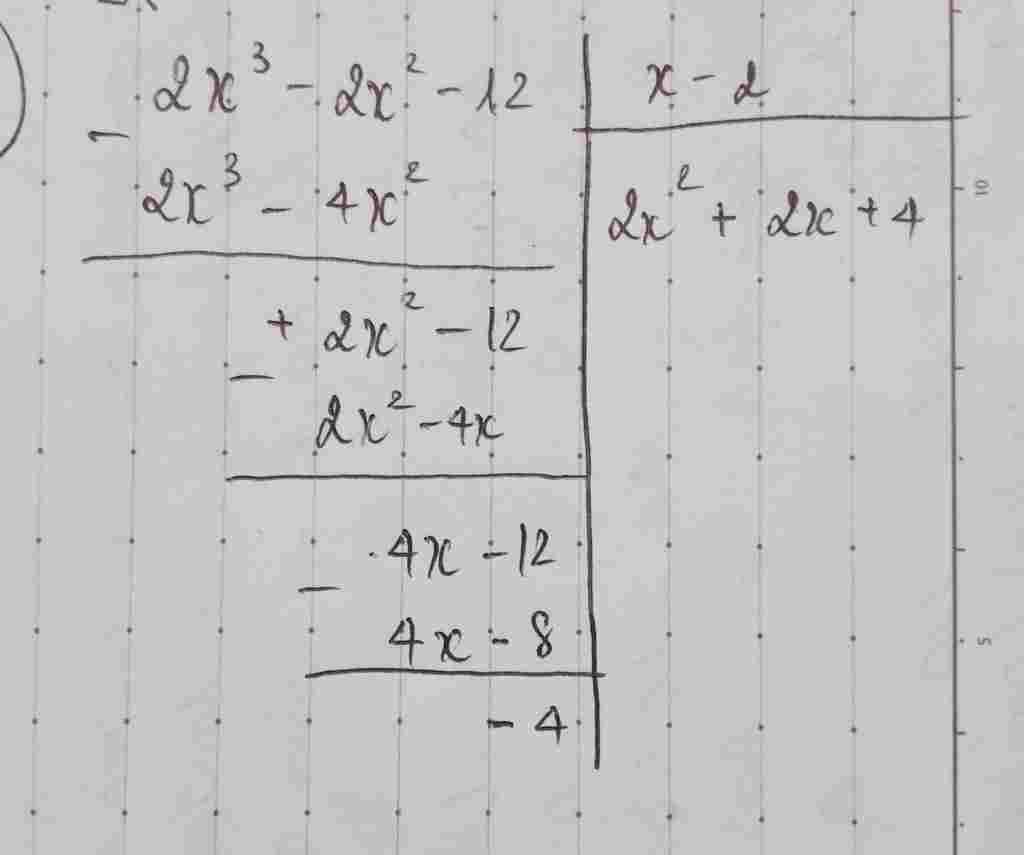 2x³ - 2x² - 12 | x - 2
-
2x³ - 4x² | 2x² + 2x + 4
+ 2x² - 12
-
2x² - 4x
4x - 12
-
4x - 8
- 4
10
5